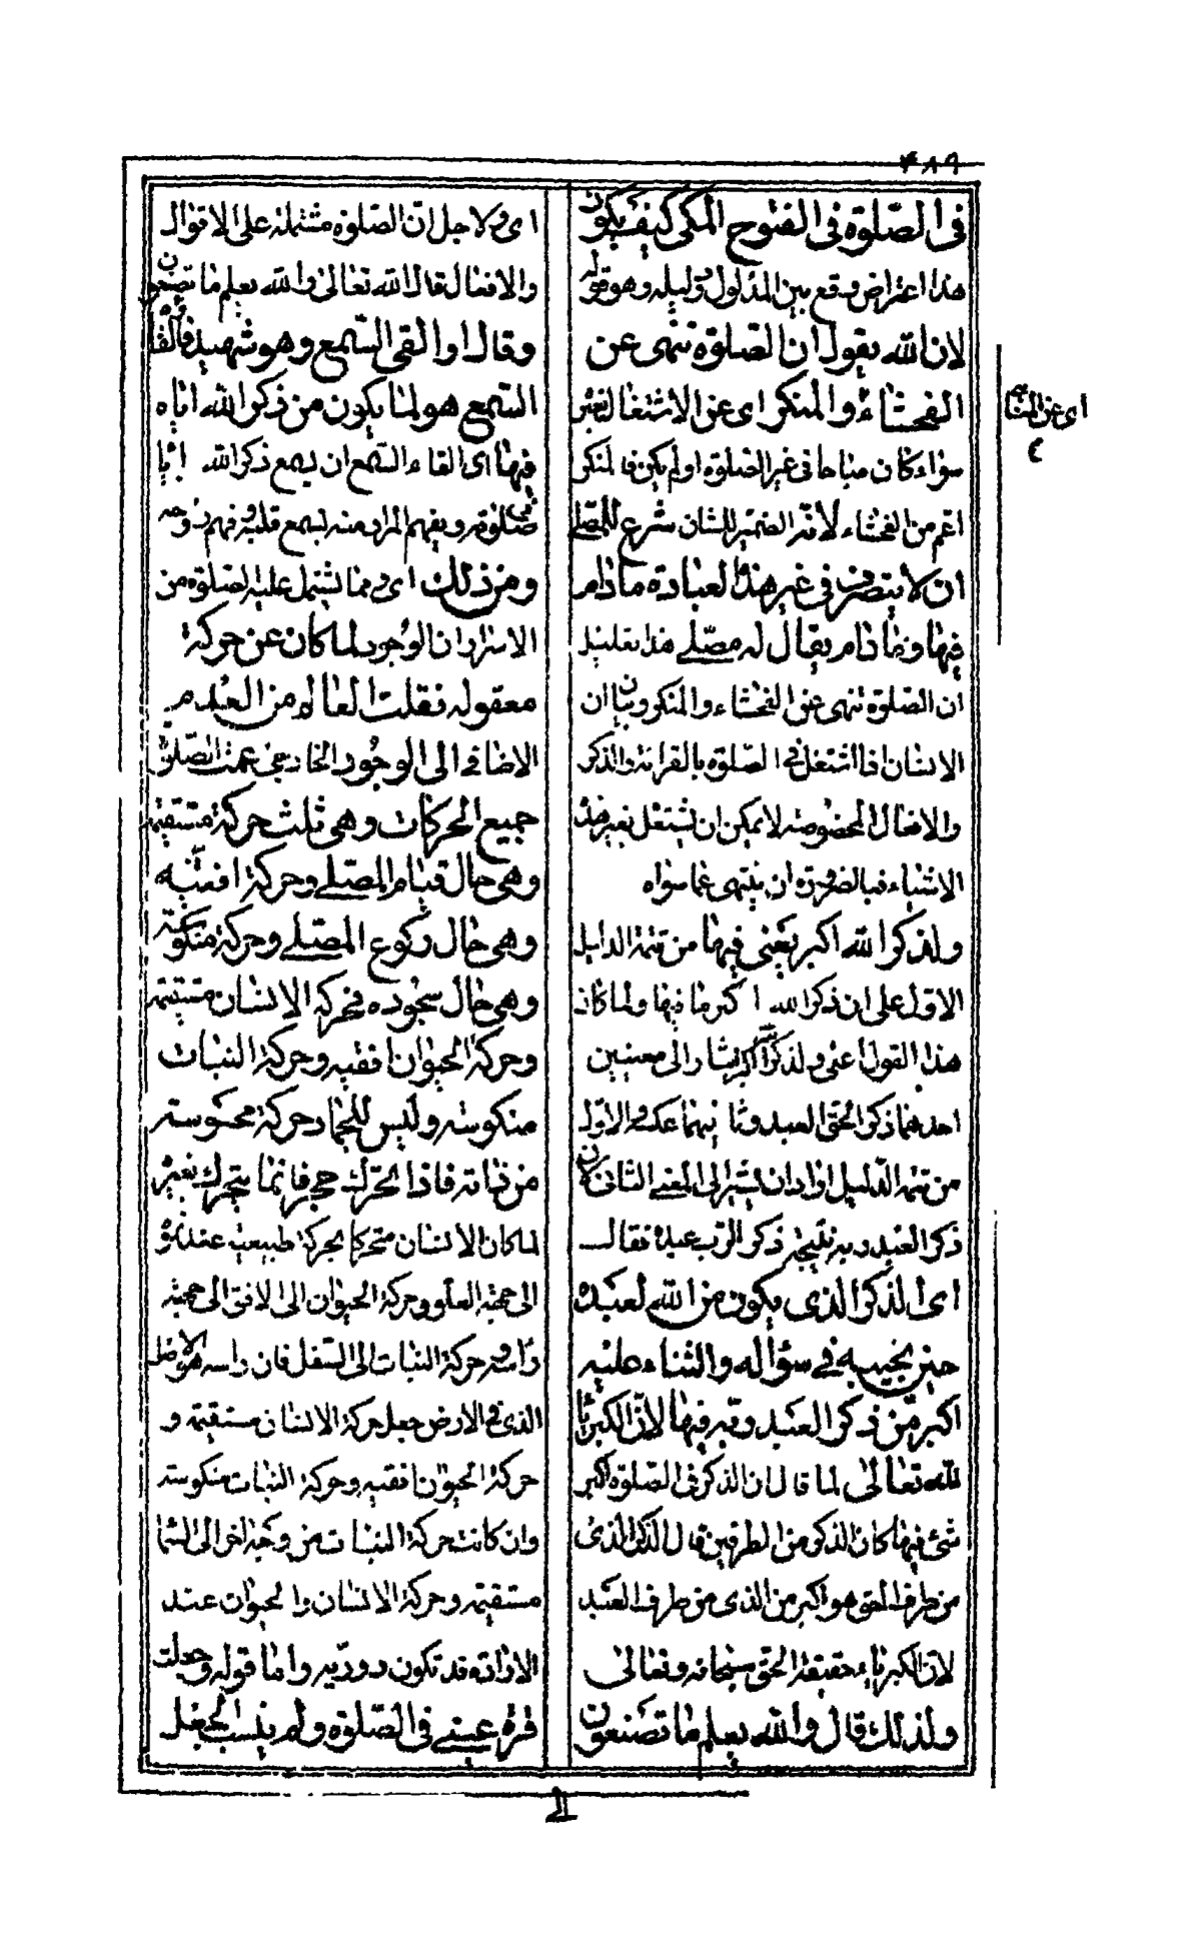 ٤٨٩
في الصّلوة في الفتوح المكي كيف يكون
هذا اعتراض وقع بين المدلول ودليله وهو قوله
لان الله يقول ان الصّلوة تنهى عن
الفحشاء والمنكر اى عن الاشتغال بغير
سواء كان مباحا فى غير الصلوة او لم يكن فالمنكر
اعم من الفحشاء لانه الضمير للشان شرع للمصلى
ان لا يتصرف فى غير هذه العبادة ما دام
فيها وما دام يقال له مصلى هذا تعليل
ان الصلوة تنهى عن الفحشاء والمنكر وبيان ان
الانسان اذا اشتغل فى الصلوة بالقرائة والذكر
والافعال المخصوصة لا يمكن ان يشتغل بغير هذه
الاشياء فبالضرورة ان ينتهى عما سواه
ولذكر الله اكبر يعنى فيها من تتمة الدليل
الاول على ان ذكر الله اكبر ما فيها ولما كان
هذا القول اعنى ولذكر الله اكبر يشار الى معنيين
احدهما ذكر الحق العبد وثانيهما عكسه والاول
من تتمة الدليل اراد ان يشير الى المعنى الثانى
ذكر العبد ربه نتيجة ذكر الرب عبده فقال
اى الذكر الذى يكون من الله لعبده
حين يجيبه فى سؤاله والثناء عليه
اكبر من ذكر العبد ربه فيها لان الكبرياء
لله تعالى لما قال ان الذكر فى الصلوة اكبر
شئ فيها كان الذكر من الطرفين قال الذكر الذى
من طرف الحق هو اكبر من الذى من طرف العبد
لان الكبرياء حقيقة الحق سبحانه وتعالى
ولذلك قال والله يعلم ما تصنعون
اى ولاجل ان الصلوة مشتملة على الاقوال
والافعال قال الله تعالى والله يعلم ما تصنعون
وقال او القى السمع وهو شهيد فالقاؤه
السمع هو لما يكون من ذكر الله اياه
فيها اى القاء السمع ان يسمع ذكر الله اياه
فى صلوته ويفهم المراد منه بسمع قلبه وفهم روحه
ومن ذلك اى ومما يشتمل عليه الصلوة من
الاسرار ان الوجود لما كان عن حركة
معقولة نقلت العالم من العدم
الاضافى الى الوجود الخارجى عمت الصلوة
جميع الحركات وهى ثلث حركة مستقيمة
وهى حال قيام المصلى وحركة افقية
وهى حال ركوع المصلى وحركة منكوسة
وهى حال سجوده فحركة الانسان مستقيمة
وحركة الحيوان افقيه وحركة النبات
منكوسته وليس للجماد حركة محسوسته
من ذاته فاذا تحرك حجر فانما يتحرك بغيره
لما كان الانسان متحركا بحركة طبيعية عند نموه
الى جهة العلو وحركة الحيوان الى الافق الى جهة
راسه وحركة النبات الى السفل فان راسه هو الاصل
الذى فى الارض جعل حركة الانسان مستقيمة و
حركة الحيوان افقيه وحركة النبات منكوسته
وان كانت حركة النبات من وجه اخر الى السماء
مستقيمة وحركة الانسان والحيوان عند
الارادة قد تكون دورية واما قوله وجعلت
قرة عينى فى الصلوة ولم ينسب الجعل
اى عن
٤
الى